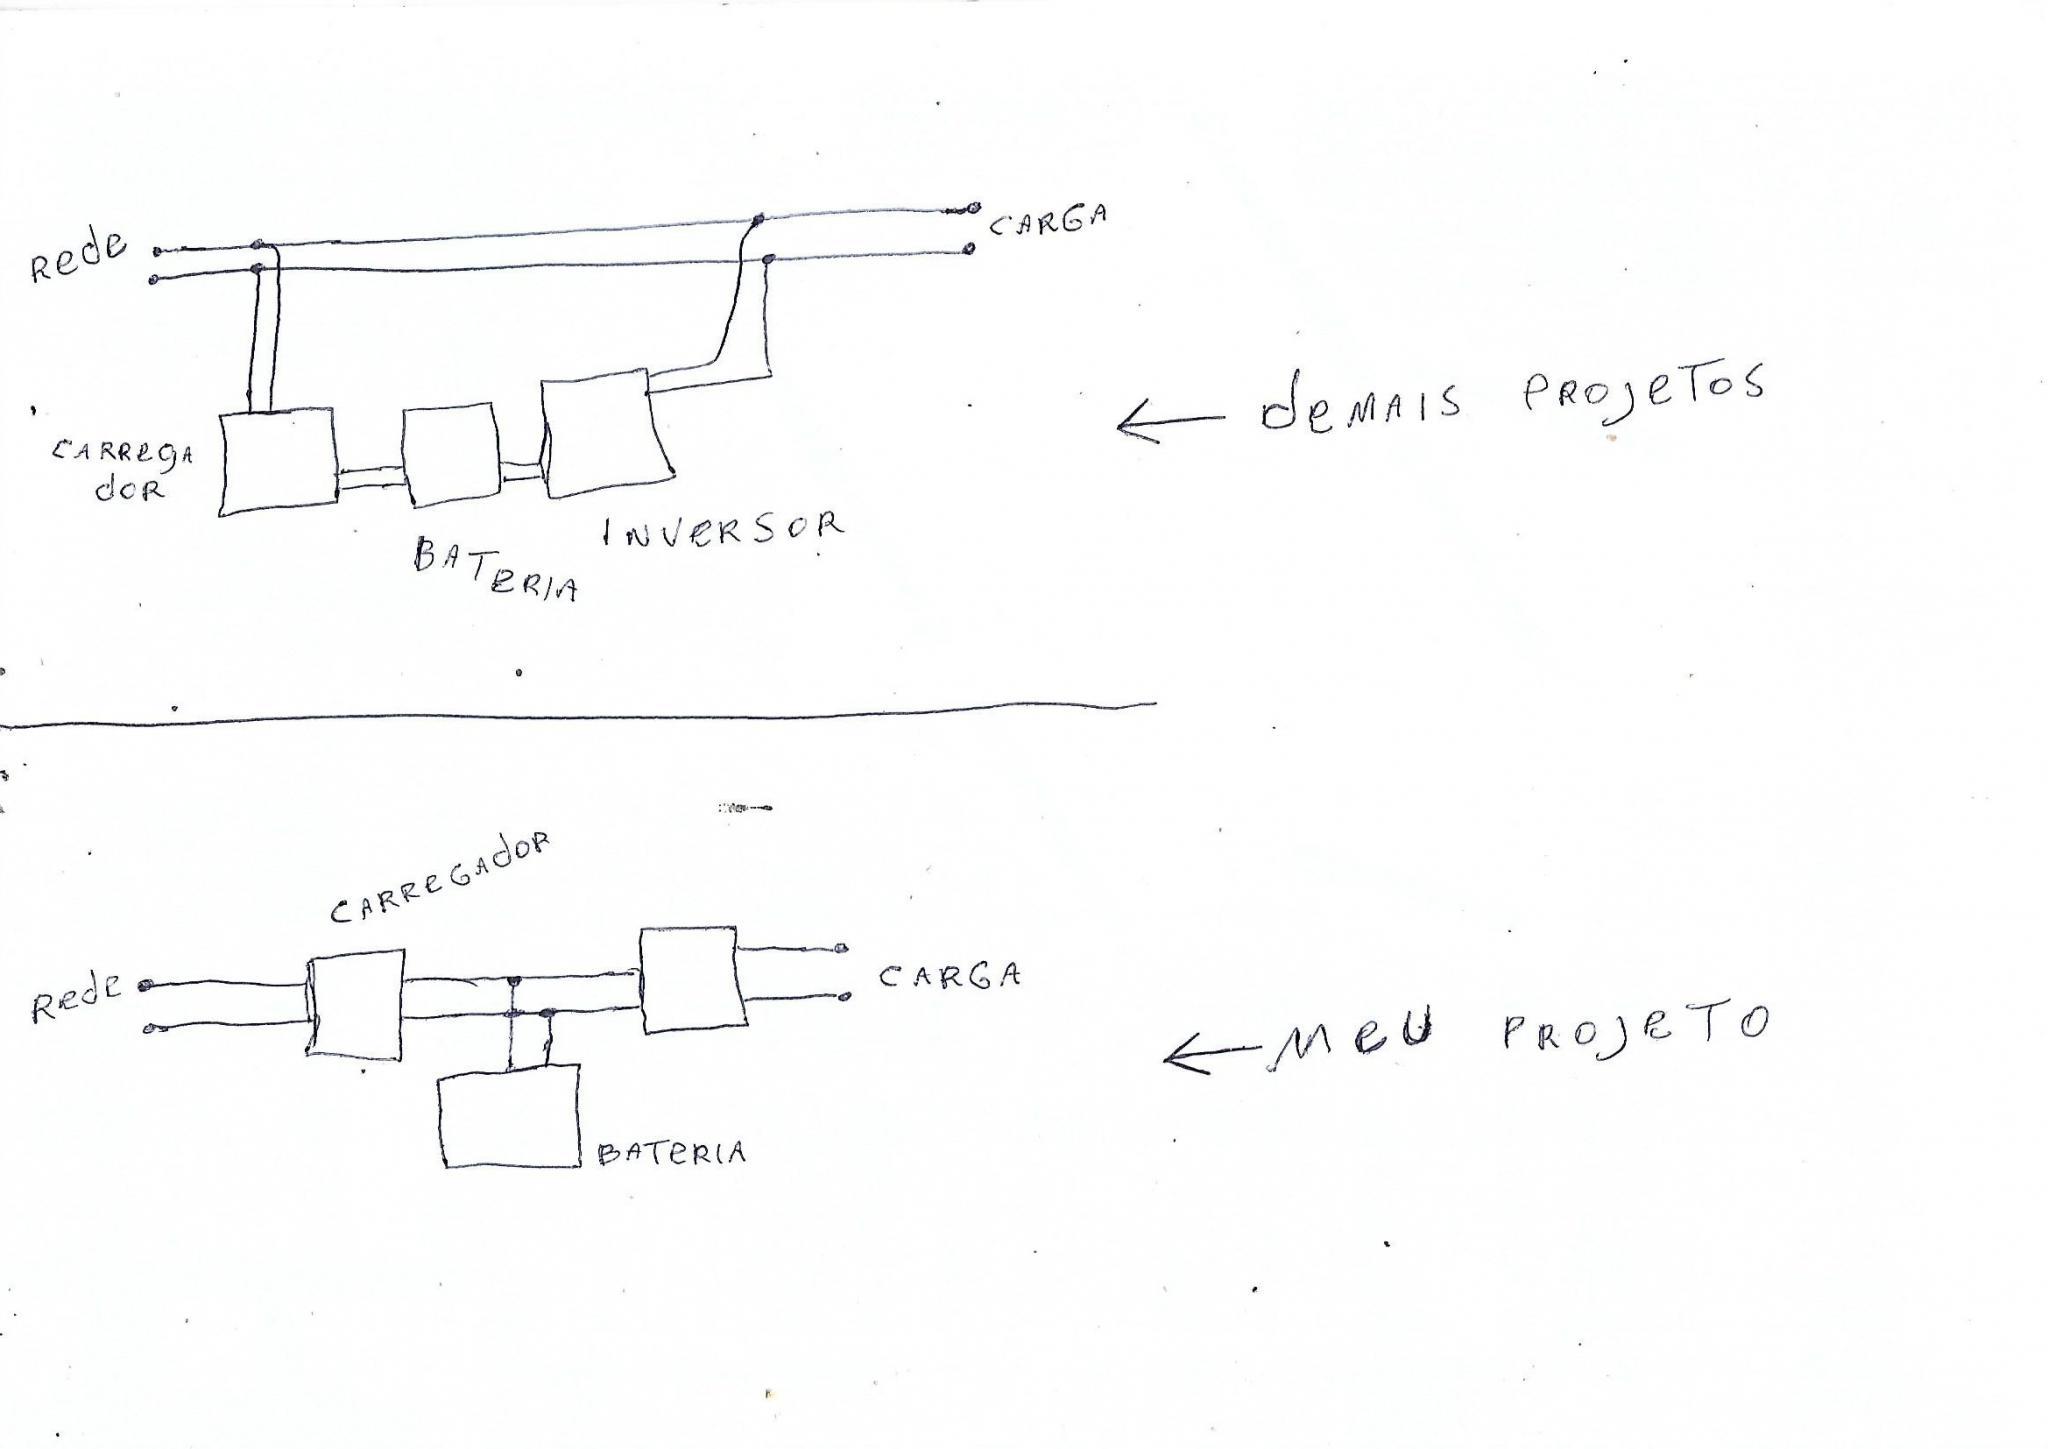 Rede
CARGA
← deMAIS PROJeTOS
CARRegA
dOR
INVeRSOR
BATeRIA
CARReGAdOR
Rede
CARGA
← MeU PROJeTO
BATeRIA